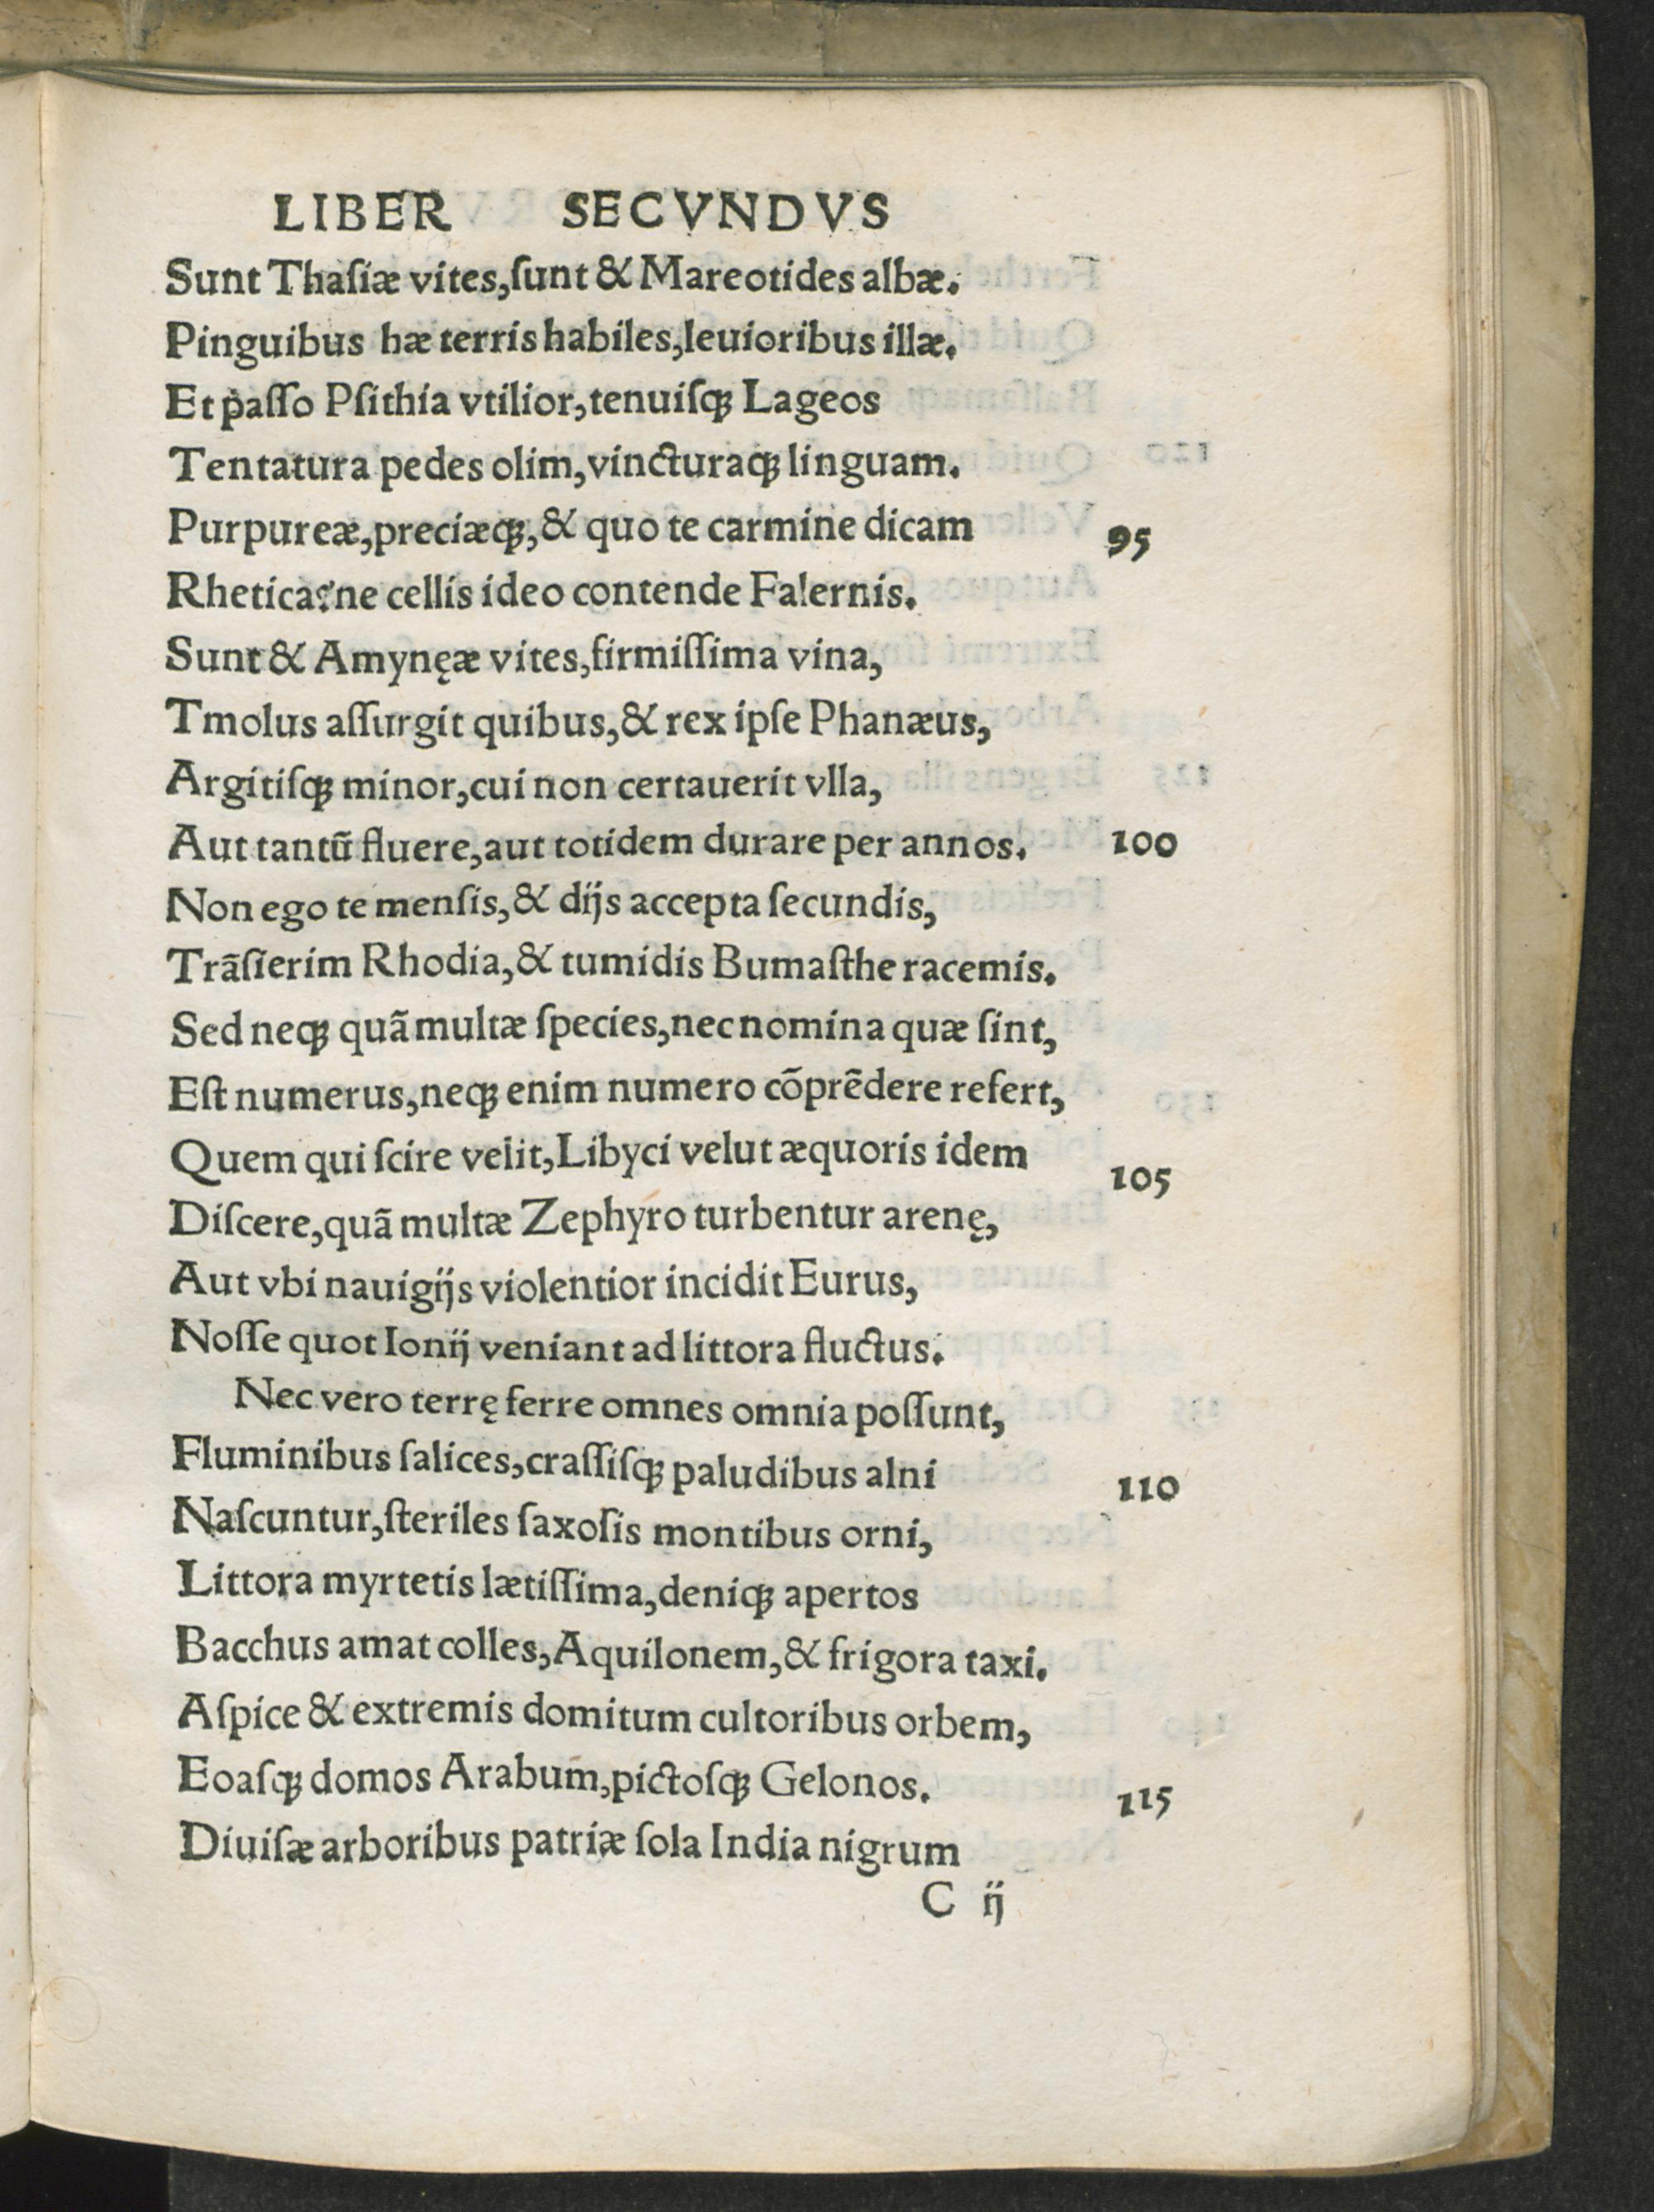 LIBER SECVNDVS
Sunt Thaſiæ vites,ſunt & Mareotides albæ.
Pinguibus hæ terris habiles,leuioribus illæ.
Et paſſo Pſithia vtilior,tenuiſqꝫ Lageos
Tentatura pedes olim,vincturaqꝫ linguam.
Purpureæ,preciæqꝫ,& quo te carmine dicam 95
Rhetica?ne cellis ideo contende Falernis.
Sunt & Amynęæ vites,firmiſſima vina,
Tmolus aſſurgit quibus,& rex ipſe Phanæus,
Argitiſqꝫ minor,cui non certauerit vlla,
Aut tantũ fluere,aut totidem durare per annos. 100
Non ego te menſis,& dijs accepta ſecundis,
Trãſierim Rhodia,& tumidis Bumaſthe racemis.
Sed neqꝫ quã multæ ſpecies,nec nomina quæ ſint,
Eſt numerus,neqꝫ enim numero cõprẽdere refert,
Quem qui ſcire velit,Libyci velut æquoris idem 105
Diſcere,quã multæ Zephyro turbentur arenę,
Aut vbi nauigijs violentior incidit Eurus,
Noſſe quot Ionij veniant ad littora fluctus.
Nec vero terrę ferre omnes omnia poſſunt,
Fluminibus ſalices,craſſiſqꝫ paludibus alni 110
Naſcuntur,ſteriles ſaxoſis montibus orni,
Littora myrtetis lætiſſima,deniqꝫ apertos
Bacchus amat colles,Aquilonem,& frigora taxi.
Aſpice & extremis domitum cultoribus orbem,
Eoaſqꝫ domos Arabum,pictoſqꝫ Gelonos. 115
Diuiſæ arboribus patriæ ſola India nigrum
C ij